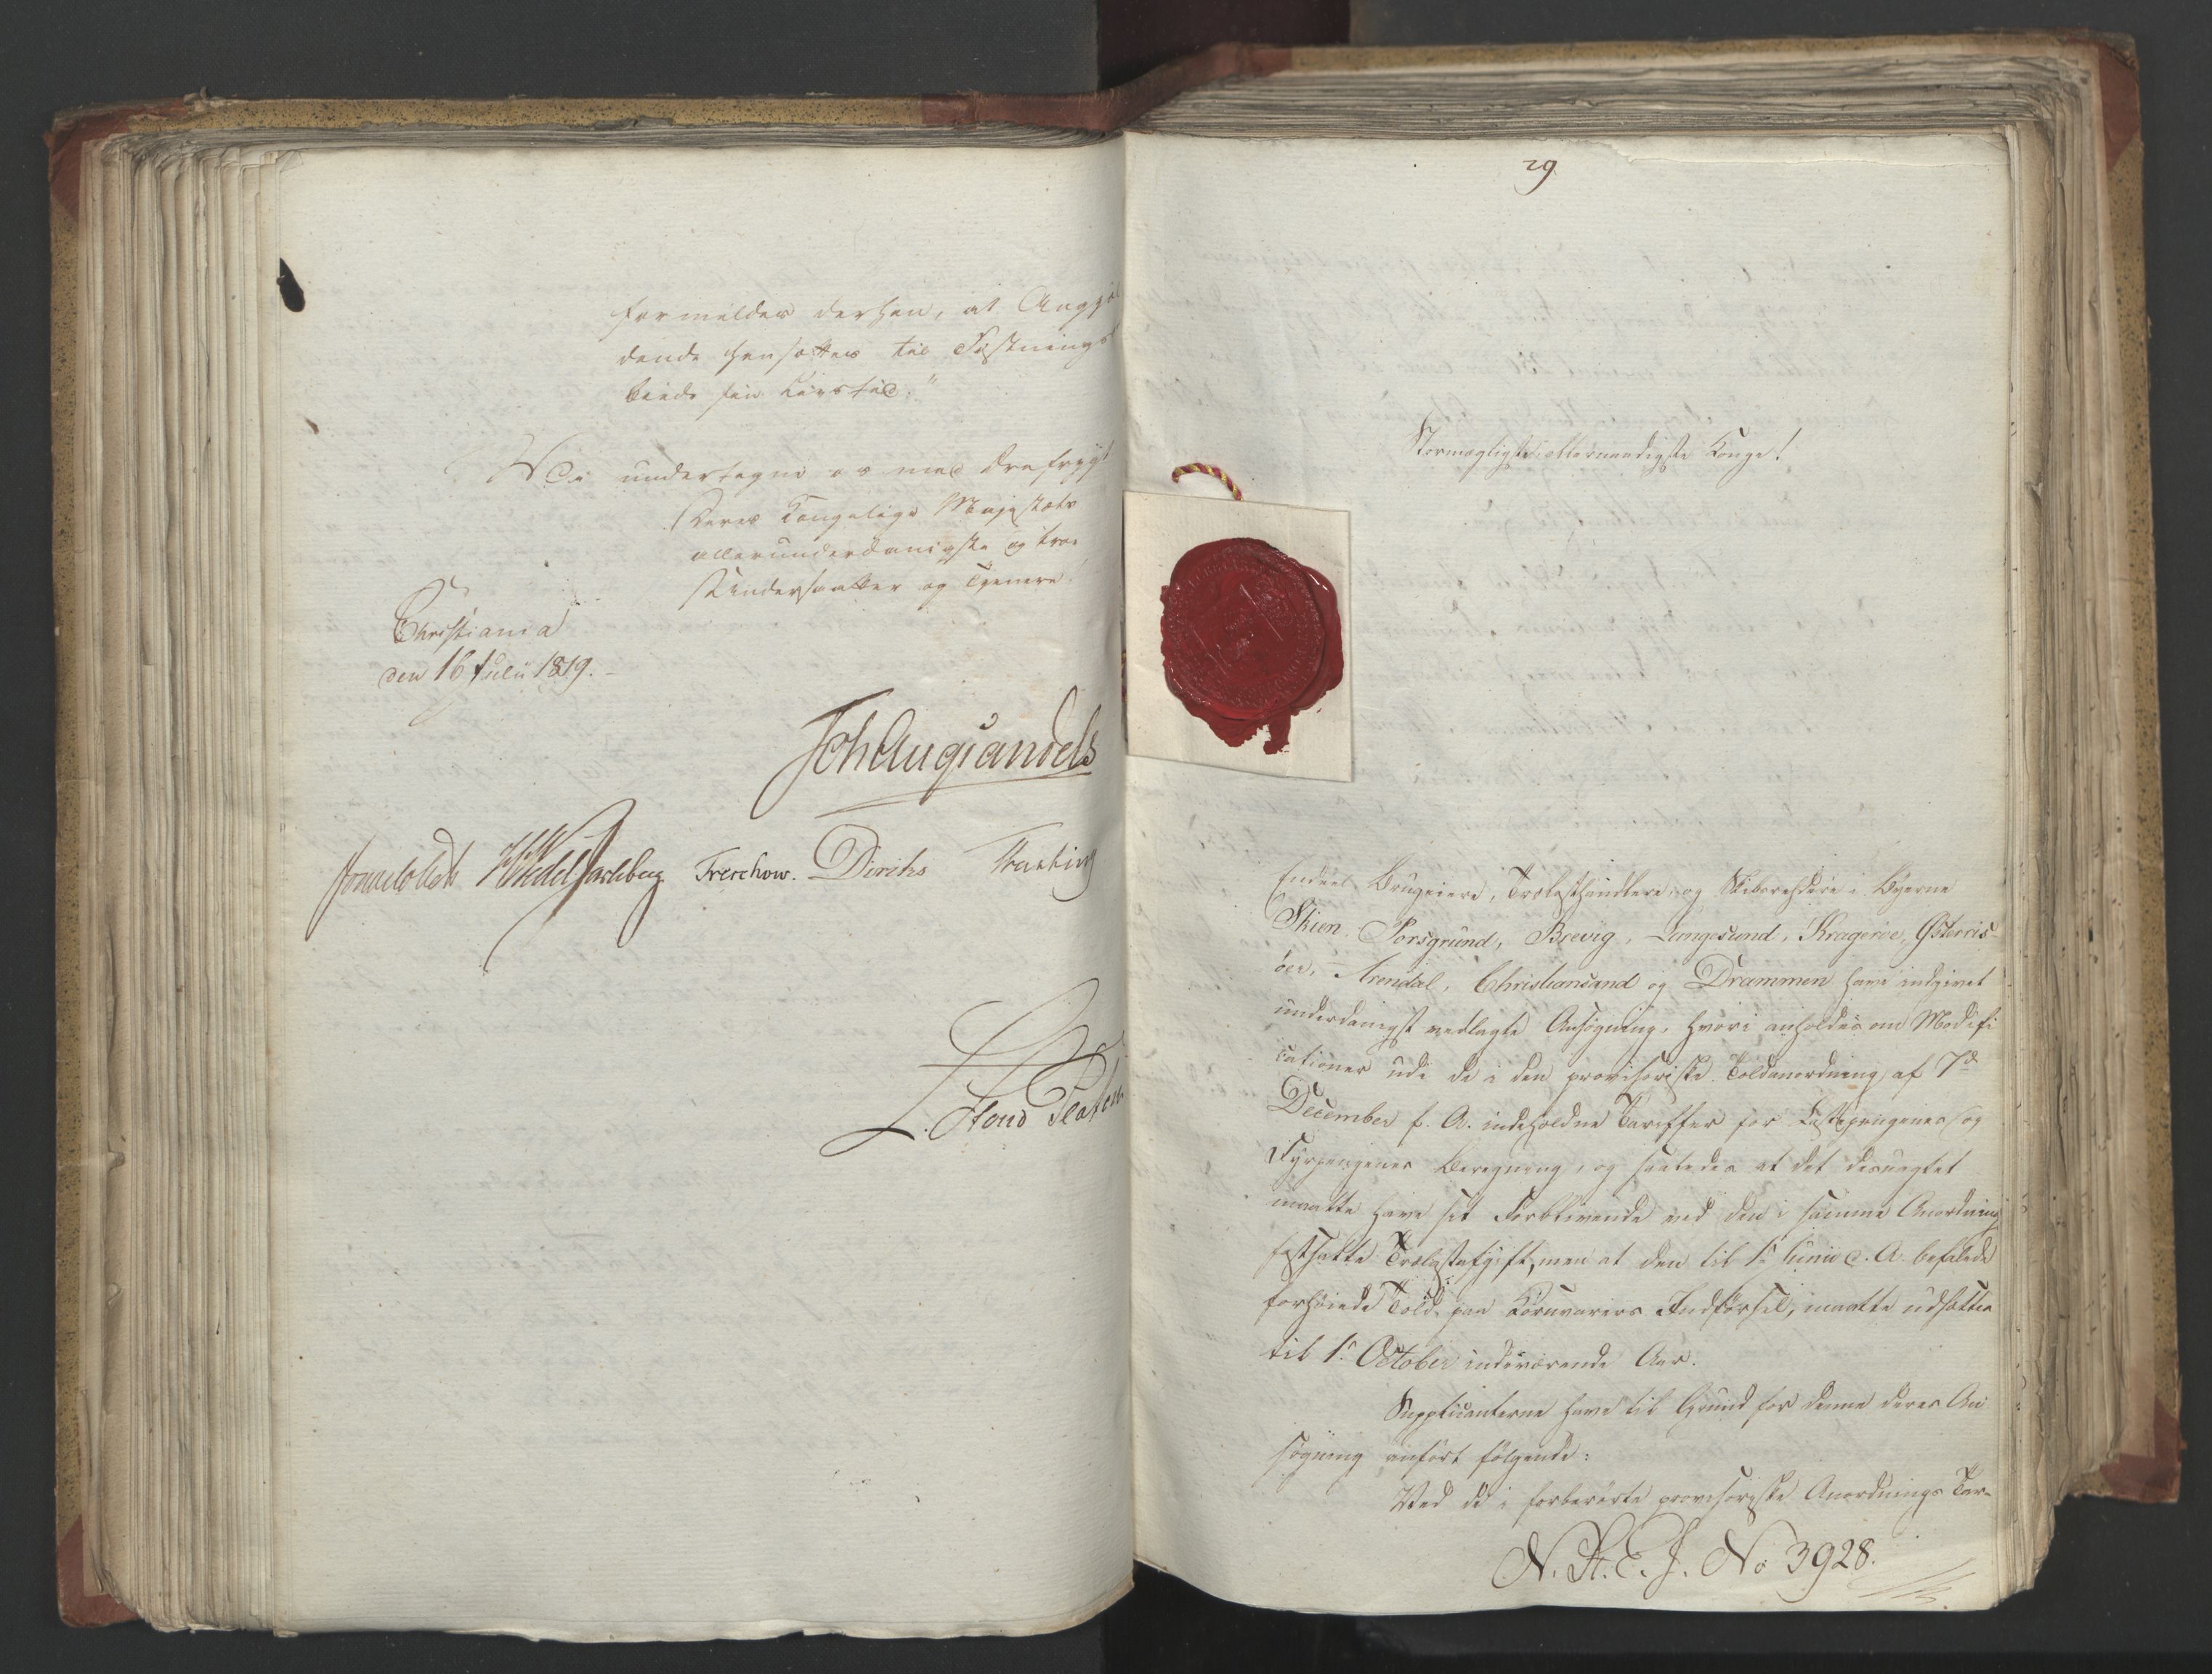 formildes derhen, at Angjel
dende hensættes til Fæstnings
Livstid."
Vi undertegne os med dybeste Ærefrygt
Deres Kongelige Majestæts
allerunderdanigste og troe
Undersaatter og Tjenere.
Christiania
den 16 Julii 1819.
Joh Aug Sandels
Sommelholdt HWedelJarlsberg Treschow. Diriks Fasting
29
Stormægtigste, allernaadigste Konge!
Endeel Brugeiere, Trælasthandlere og Skibsrhedere i Byerne
Skien, Porsgrund, Brevig, Langesund, Krageröe, Østerriis-
öer, Arendal, Christiansand og Drammen have indgivet
underdanigst vedlagte Ansøgning, hvori anholdes om Modifi
cationer udi de i den provisoriske Toldanordning af 7d
December f. A. indeholdne Tariffer for Læstepengenes og
Fyrpengenes Beregning, og saaledes at det desuagtet
maatte have sit Forblivende ved den i samme Anordning
fastsatte Trælastafgift, men at den til 1r Junii d. A. befalede
forhöiede Told paa Kornvarers Indförsel, maatte udsættes
til 1r October indeværende Aar.
Supplicanterne have til Grund for denne deres An
søgning anfört fölgende:
Ved de i forberörte provisoriske Anordnings Tar-
N. St. E. J. No 3928.